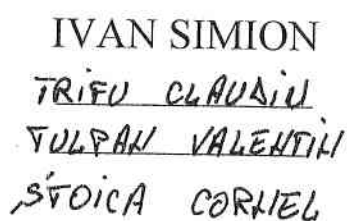 IVAN SIMION
TRIFU CLAUDIU
TULPAN VALENTIN
STOICA CORNEL